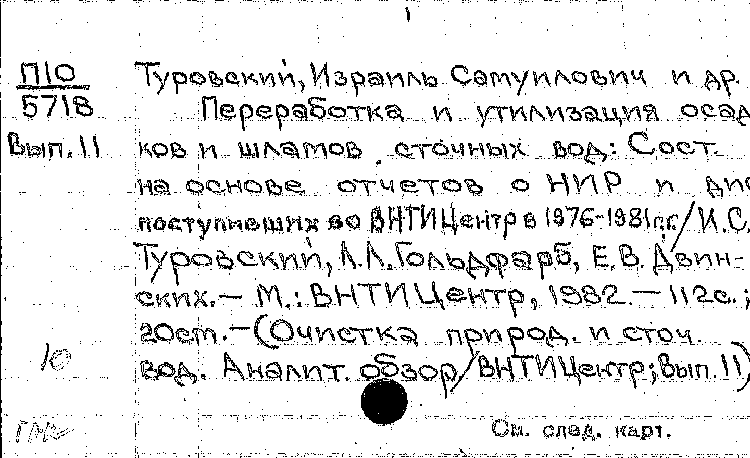 П10
5718
Вып. 11
Туровский, Израиль Самуилович и др.
Переработка и утилизация осад
ков и шламов сточных вод: Сост.
на основе отчетов о НИР и дис
поступивших во ВНТИЦентр в 1976-1981гг./ И.С.
Туровский, Л.Л. Гольдфарб, Е.В. Двин-
ских. — М.: ВНТИЦентр, 1982. — 112с.;
20см. — (Очистка природ. и сточ.
вод. Аналит. обзор/ВНТИЦентр; Вып. 11)
См. след. карт.